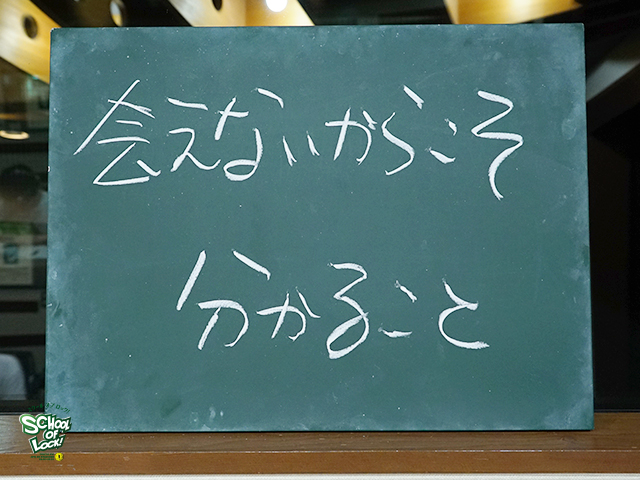 会えないからこそ
分かること
SCHOOL
OF
LOCK!